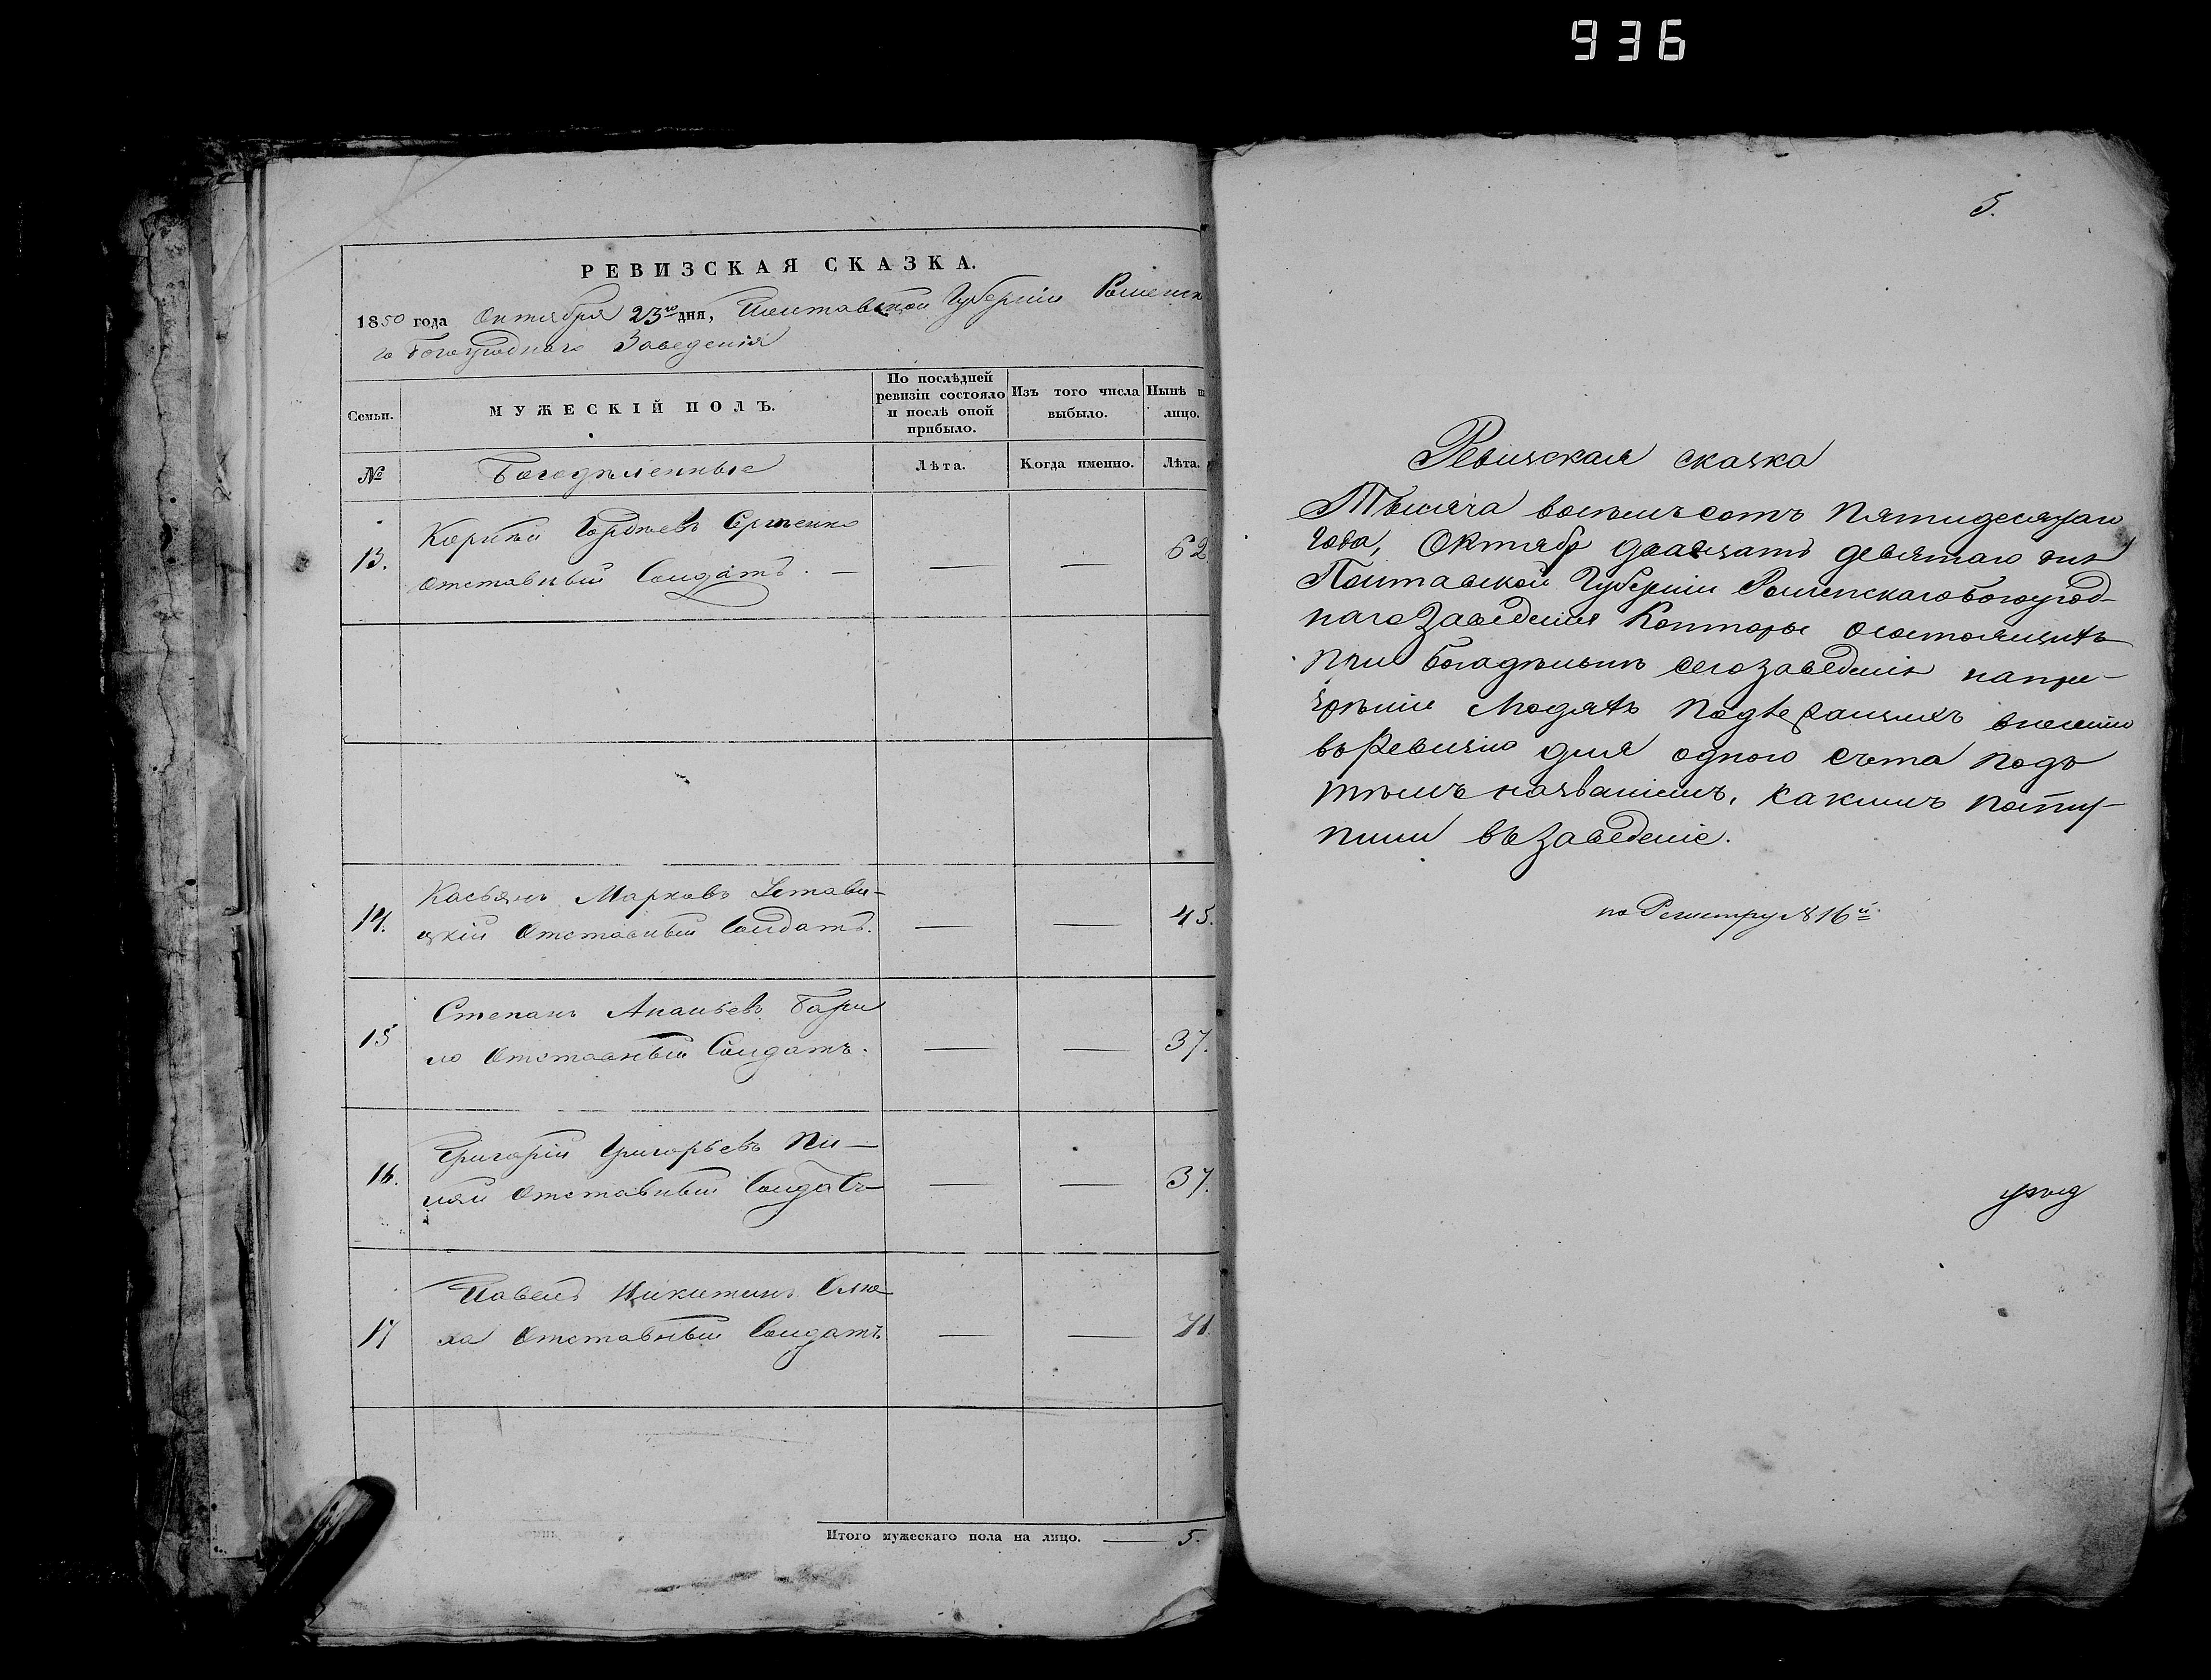 936
РЕВИЗСКАЯ СКАЗКА.
1850 года Октября 23го дня, Полтавской Губерніи Роменска
го Богоугоднаго Заведенія
Семьи.
МУЖЕСКІЙ ПОЛЪ.
По послѣдней
ревизіи состояло
и послѣ оной
прибыло.
Изъ того числа
выбыло.
Нынѣ н
лицо.
№
Богодѣленные
Лѣта.
Когда именно.
Лѣта.
13.
Корнѣй Гордѣевъ Сергѣенко
отставный Солдатъ. — — — 62
14.
Касьянъ Марковъ Устави-
цкій Отставный Солдатъ. — — 45.
15
Степанъ Ананьевъ Бари
ло Отставный Солдатъ. — — 37.
16.
Григорій Григорьевъ Пи—
ляй Отставный Солдатъ — — 37.
17
Павелъ Никитинъ Слю
ха Отставный Солдатъ — — 71.
Итого мужескаго пола на лицо. — 5.
5.
Ревизская сказка
Тысяча восемьсотъ пятидесятаго
Года, Октября двадцать девятаго дня
Полтавской Губерніи Роменскаго богоугод-
наго Заведенія Конторы о состоящихъ
при богадѣльнѣ сего заведенія на при-
зрѣніи людяхъ внесены
въ Ревизію для одного счета подъ
тѣмъ названіемъ, какимъ посту-
пили въ Заведеніе.
по Регистру № 16й